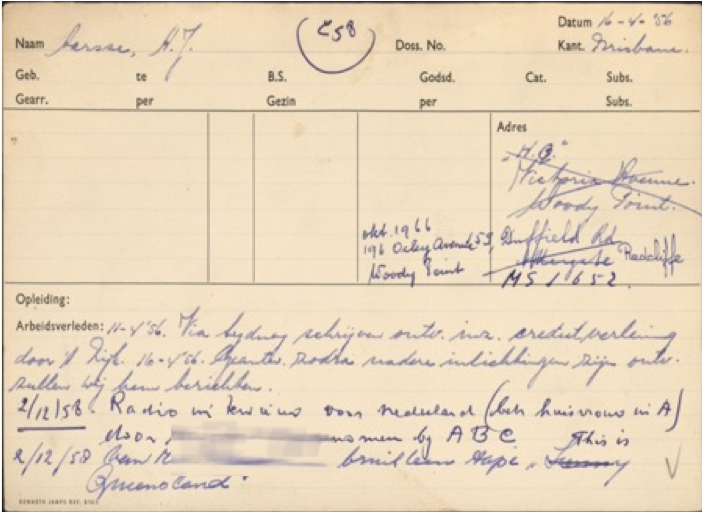 Datum 16-4-'56
Naam Carsse, H.J. 258 Doss. No. Kant. Brisbane.
Geb. te B.S. Godsd. Cat. Subs.
Gearr. per Gezin per Subs.
Adres
Victoria Avenue.
Woody Point.
okt. 1966
196 Oxley Avenue 59, Duffield Rd
Woody Point Margate Redcliffe
MS 1652
Opleiding:
Arbeidsverleden: 11-4-'56. Via Sydney schrijven ontv. inz. credietverlening
door 't Rijk. 16-4-'56. Geantw. zodra nadere inlichtingen zijn ontv.
zullen wij hem berichten.
2/12/58. Radio interview voor Nederland (betr huisvrouw in A)
door nomen by ABC This is
2/12/58 Van Sunny
Queensland"
KENNETH JAMES